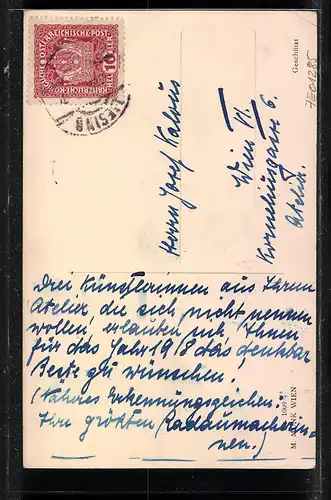 KAISERLICHE KÖNIGLICHE ÖSTERREICHISCHE POST
10
LIESING
Herrn Josef
Wien VI.
Korneliusgasse 6.
Atelier.
Geschützt
7E01285
Drei Künstlerinnen aus Ihrem
Atelier, die sich nicht nennen
wollen, erlauben sich, Ihnen
für das Jahr 1918 das denkbar
Beste zu wünschen.
(Näheres Erkennungszeichen:
Ihre größten Radaumacherin-
nen.)
M. MUNK WIEN